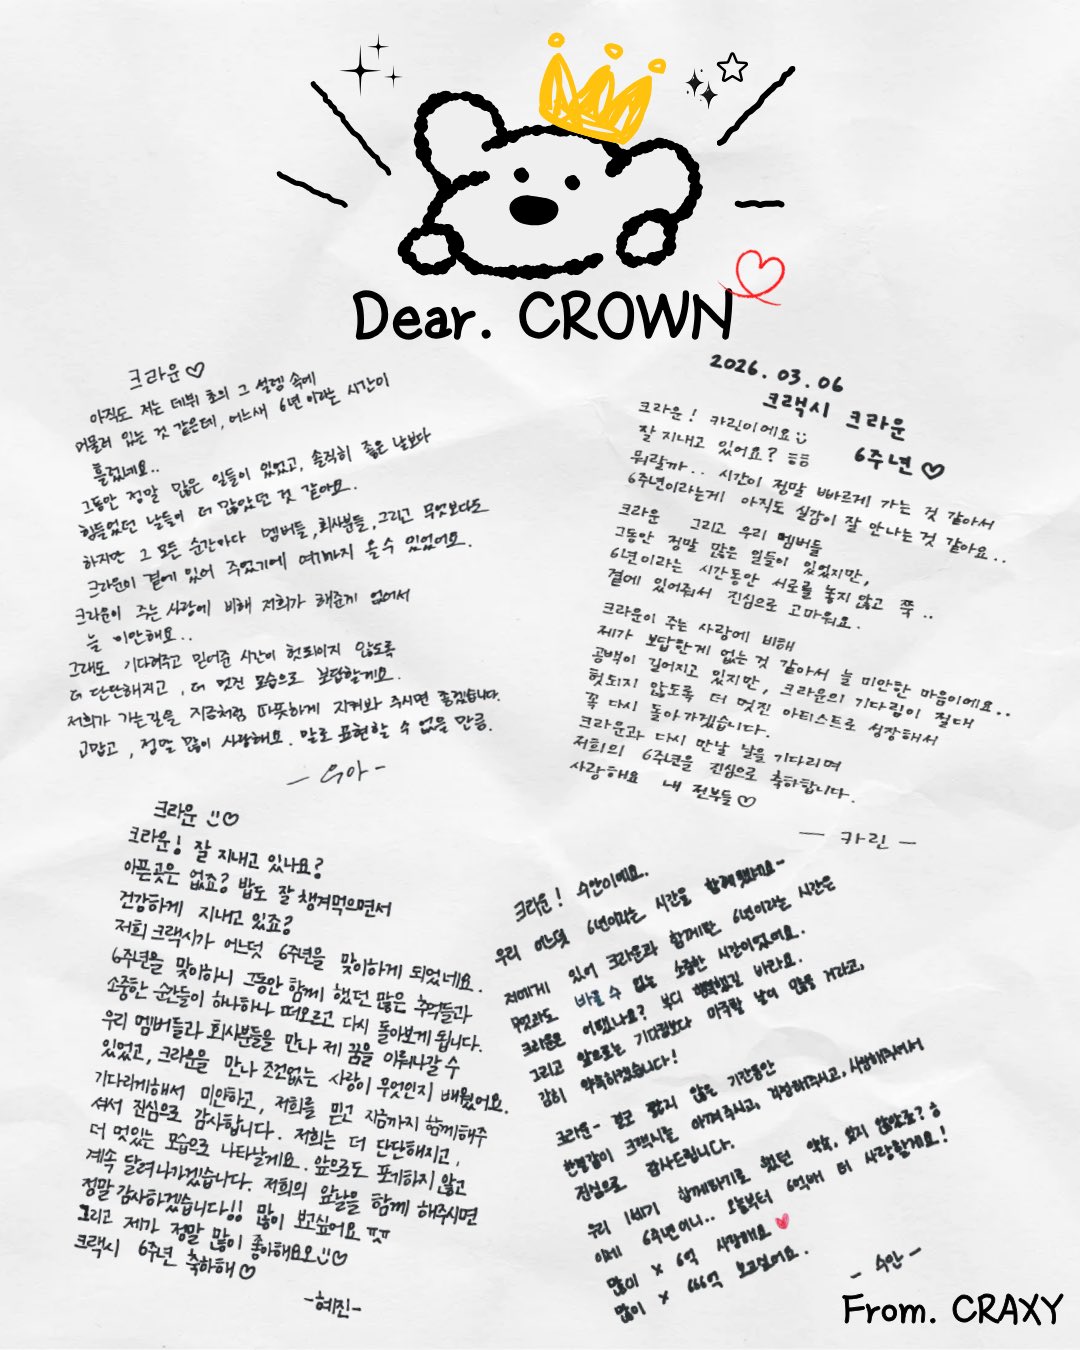 Dear. CROWN
크라운♡
아직도 저는 데뷔 초의 그 설렘 속에
머물러 있는 것 같은데, 어느새 6년이라는 시간이
흘렀네요..
그동안 정말 많은 일들이 있었고, 솔직히 좋은 날보다
힘들었던 날들이 더 많았던 것 같아요.
하지만 그 모든 순간마다 멤버들, 회사분들, 그리고 무엇보다도
크라운이 곁에 있어 주었기에 여기까지 올 수 있었어요.
크라운이 주는 사랑에 비해 저희가 해준게 없어서
늘 미안해요..
그래도 기다려주고 믿어준 시간이 헛되이지 않도록
더 단단해지고, 더 멋진 모습으로 보답할게요.
저희가 가는길을 지금처럼 따뜻하게 지켜봐 주시면 좋겠습니다.
고맙고, 정말 많이 사랑해요. 말로 표현할 수 없을 만큼.
- 우아 -
2026.03.06
크랙시 크라운
6주년♡
크라운! 카린이에요
잘 지내고 있어요? ㅎㅎ
뭐랄까.. 시간이 정말 빠르게 가는 것 같아서
6주년이라는게 아직도 실감이 잘 안나는 것 같아요..
크라운 그리고 우리 멤버들
그동안 정말 많은 일들이 있었지만,
6년이라는 시간동안 서로를 놓지 않고 쭉..
곁에 있어줘서 진심으로 고마워요.
크라운이 주는 사랑에 비해
제가 보답한게 없는 것 같아서 늘 미안한 마음이에요..
공백이 길어지고 있지만, 크라운의 기다림이 절대
헛되지 않도록 더 멋진 아티스트로 성장해서
꼭 다시 돌아가겠습니다.
크라운과 다시 만날 날을 기다리며
저희의 6주년을 진심으로 축하합니다.
사랑해요 내 전부들♡
- 카린 -
크라운 ♡
크라운! 잘 지내고 있나요?
아픈곳은 없죠? 밥도 잘 챙겨먹으면서
건강하게 지내고 있죠?
저희 크랙시가 어느덧 6주년을 맞이하게 되었네요.
6주년을 맞이하니 그동안 함께 했던 많은 추억들과
소중한 순간들이 하나하나 떠오르고 다시 돌아보게 됩니다.
우리 멤버들과 회사분들을 만나 제 꿈을 이뤄나갈 수
있었고, 크라운을 만나 조건없는 사랑이 무엇인지 배웠어요.
기다리게해서 미안하고, 저희를 믿고 지금까지 함께해주
셔서 진심으로 감사합니다. 저희는 더 단단해지고,
더 멋있는 모습으로 나타날게요. 앞으로도 포기하지 않고
계속 달려나가겠습니다. 저희의 앞날을 함께 해주시면
정말 감사하겠습니다!! 많이 보고싶어요 ㅠㅠ
그리고 제가 정말 많이 좋아해요오♡
크랙시 6주년 축하해♡
-혜진-
크라운! 수안이에요.
우리 어느덧 6년이라는 시간을 함께했네요~
저에게 있어 크라운과 함께한 6년이라는 시간은
무엇과도 바꿀 수 없는 소중한 시간이었어요.
크라운은 어땠나요? 부디 행복했길 바라요.
그리고 앞으로는 기다림보다 마주할 날이 많을 거라고,
감히 약속하겠습니다!
크라운- 결코 짧지 않은 기간동안
한결같이 크랙시를 아껴주시고, 걱정해주시고, 사랑해주셔서
진심으로 감사드립니다.
우리 1세기 함께하기로 했던 약속, 잊지 않았죠?
이제 6주년이니.. 오늘부터 6억배 더 사랑할게요!
많이 x 6억 사랑해요
많이 x 666억 보고싶어요.
- 수안 -
From. CRAXY